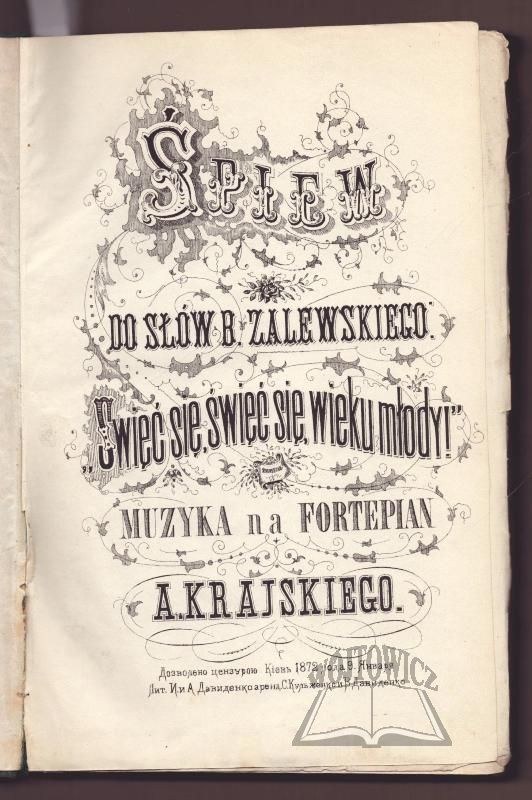 ŚPIEW
DO SŁÓW B. ZALEWSKIEGO:
„Święć się, święć się, wieku młody!”
MUZYKA na FORTEPIAN
A. KRAJSKIEGO.
Дозволено цензурою Кіевъ 1872 года 9. Января
Лит. И. и А. Давиденко аренд. С. Кульженко и В. Давиденко
WÓJTOWICZ